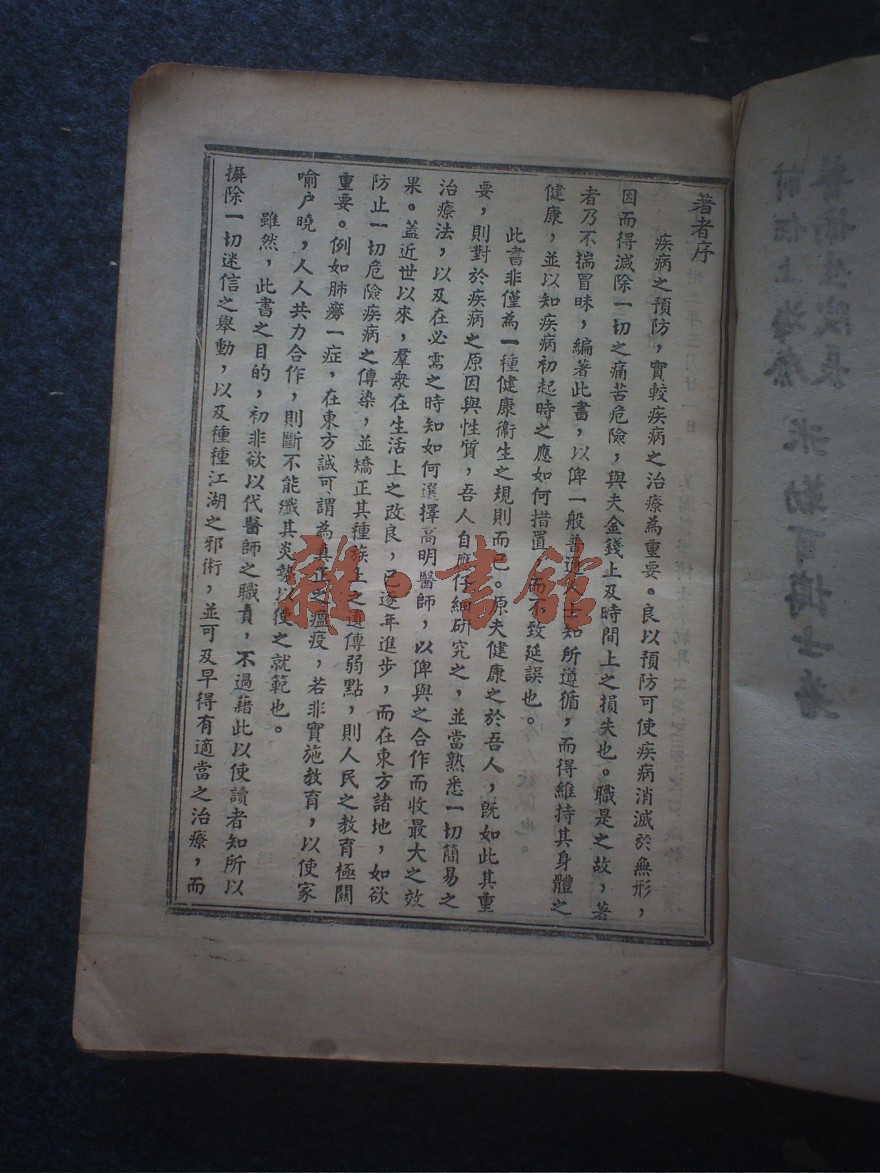 著者序
疾病之預防，實較疾病之治療為重要。良以預防可使疾病消滅於無形，
因而得滅除一切之痛苦危險，與夫金錢上及時間上之損失也。職是之故，著
者乃不揣冒昧，編著此書，以俾一般普通人士知所遵循，而得維持其身體之
健康，並以知疾病初起時之應如何措置，而不致延誤也。
此書非僅為一種健康衛生之規則而已。原夫健康之於吾人，旣如此其重
要，則對於疾病之原因與性質，吾人自應仔細研究之，並當熟悉一切簡易之
治療法，以及在必需之時知如何選擇高明醫師，以俾與之合作而收最大之效
果。蓋近世以來，羣衆在生活上之改良，已逐年進步，而在東方諸地，如欲
防止一切危險疾病之傳染，並矯正其種族上之遺傳弱點，則人民之教育極關
重要。例如肺癆一症，在東方誠可謂為真正之瘟疫，若非實施教育，以使家
喻户曉，人人共力合作，則斷不能殲其炎勢以使之就範也。
雖然，此書之目的，初非欲以代醫師之職責，不過藉此以使讀者知所以
摒除一切迷信之舉動，以及種種江湖之邪術，並可及早得有適當之治療，而
雜·書館